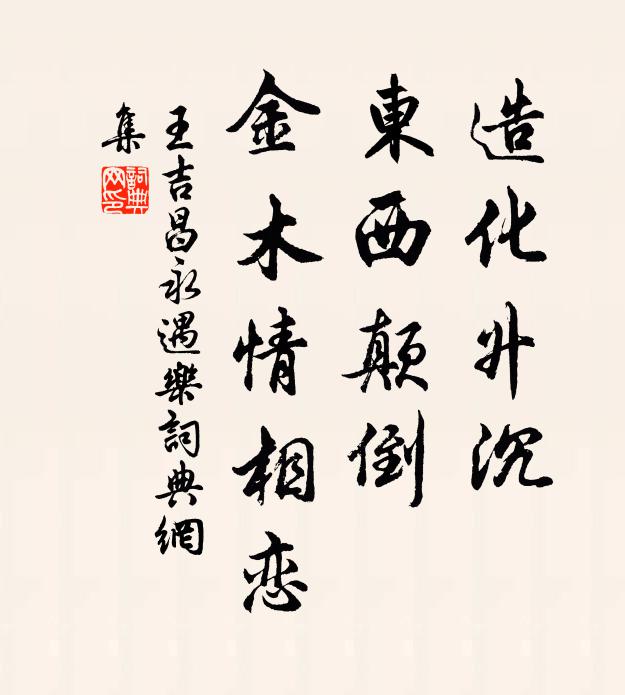 造化升沉
東西颠倒
金木情相恋
王吉昌永遇樂詞典網
集
詞典
网印